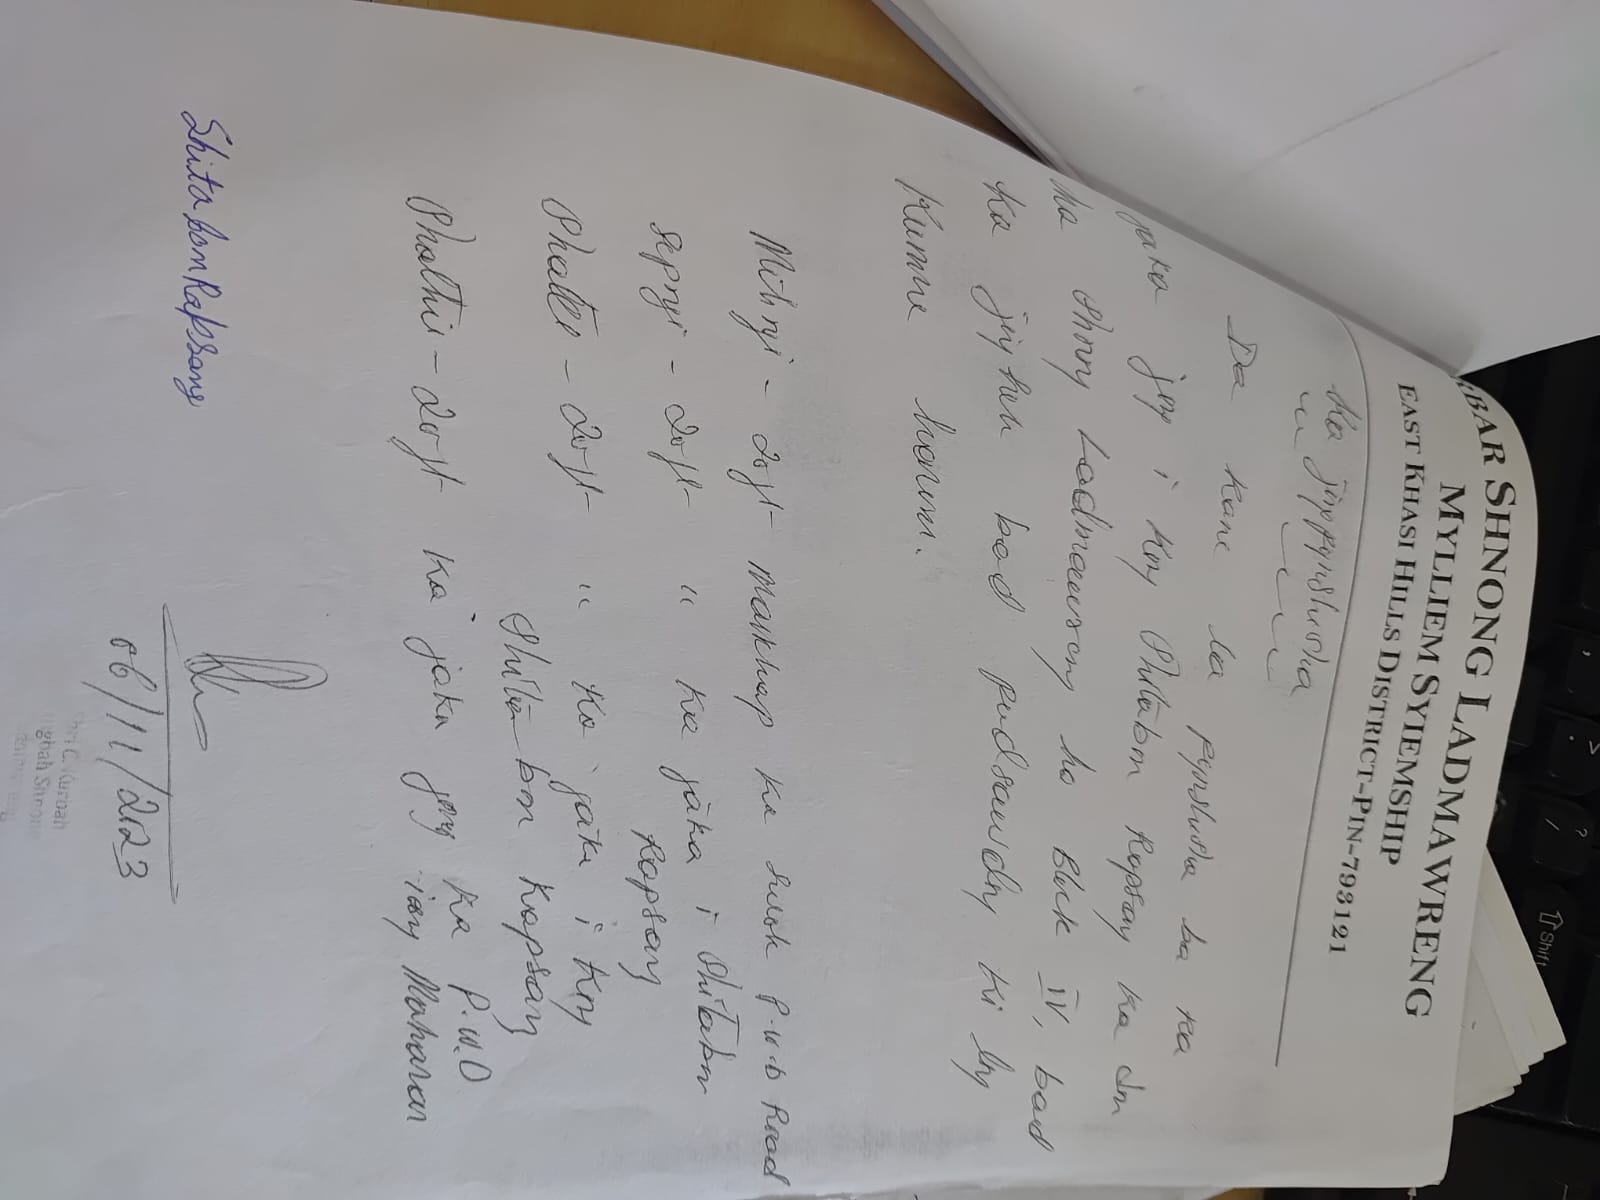 BAR SHNONG LADMAWRENG
MYLLIEM SYIEMSHIP
EAST KHASI HILLS DISTRICT-PIN-793121
Ka jingpynshisha
Da kane la pynshisha ba ka
jaka jong i Kong Shitabon Rapsang ka don
ha shnong Ladmawreng ha Block IV, bad
Ka jingheh bad pud sawdong ki long
Kumne harum.
Mihngi - 20ft markhap ka surok P.W.D Road
Sepngi - 20ft " Ka jaka i Shitabon
Rapsang
Shatei - 20ft " Ka jaka i Kong
Shitabon Rapsang
Shathie - 20ft Ka jaka jong Ka P.W.D
Shitabon Rapsang
06/11/2023
Shri C. Kurbah
Shnong